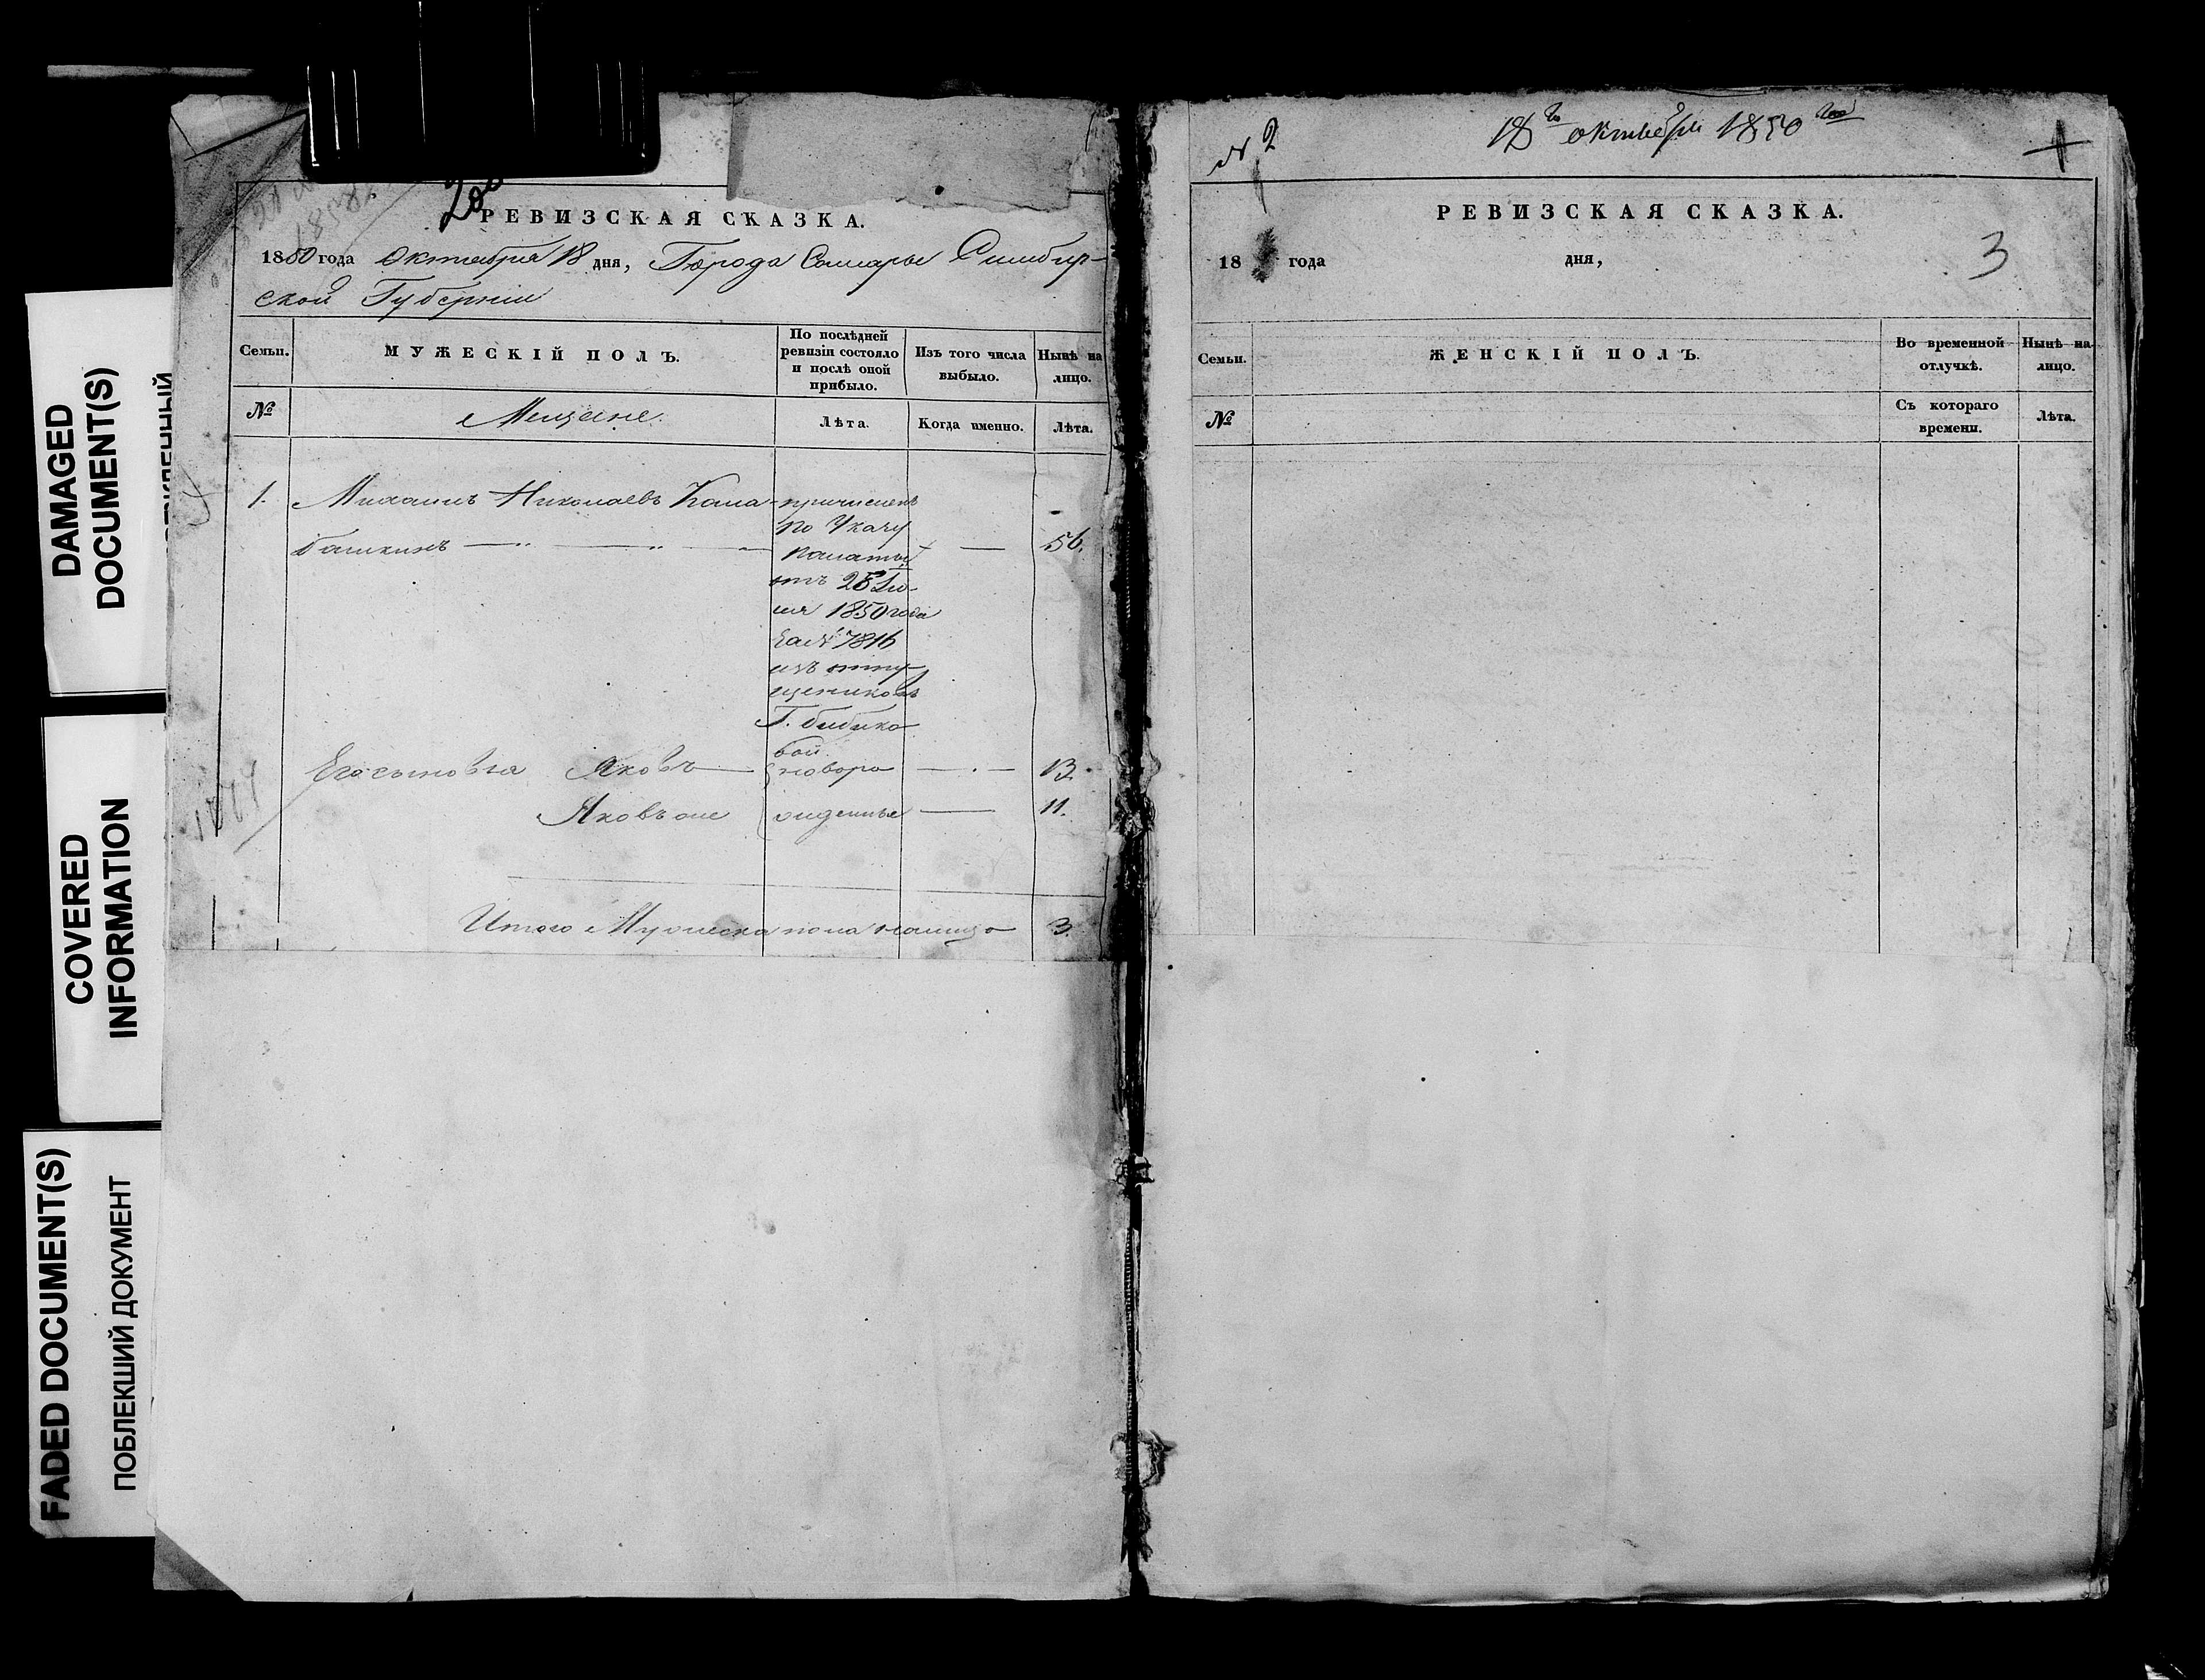 DAMAGED
DOCUMENT(S)
COVERED
INFORMATION
FADED DOCUMENT(S)
ПОБЛЕКШИЙ ДОКУМЕНТ
РЕВИЗСКАЯ СКАЗКА.
1850 года Октября 18 дня, Города Самары Симбир-
ской Губернiи
Семьи.
МУЖЕСКІЙ ПОЛЪ.
По послѣдней
ревизіи состояло
и послѣ оной
прибыло.
Изъ того числа
выбыло.
Нынѣ на
лицо.
№
Мещане.
Лѣта.
Когда именно.
Лѣта.
1. Михаилъ Николаевъ Кала-
башкинъ
причисленъ
по Указу
палаты
отъ 28 Iю-
ля 1850 года
за № 7816
изъ отпу-
щениковъ
Г. Бибико
вой
56.
Его сыновья Яковъ новоро 13.
Яковъ же жденные 11.
Итого Мужеска пола налицо 3.
№ 2
18го октября 1850 года
РЕВИЗСКАЯ СКАЗКА.
18 года дня,
3
Семьи.
ЖЕНСКІЙ ПОЛЪ.
Во временной
отлучкѣ.
Нынѣ на
лицо.
№
Съ котораго
времени.
Лѣта.